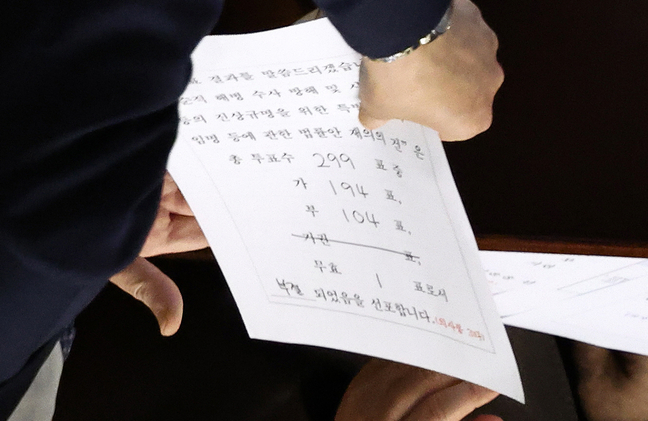 표 결과를 말씀드리겠습니
순직 해병 수사 방해 및 사
등의 진상규명을 위한 특별
임명 등에 관한 법률안 재의의 건"은
총 투표수 299 표 중
가 194 표,
부 104 표,
기권 표,
무효 1 표로서
부결 되었음을 선포합니다. (의사봉 3타)